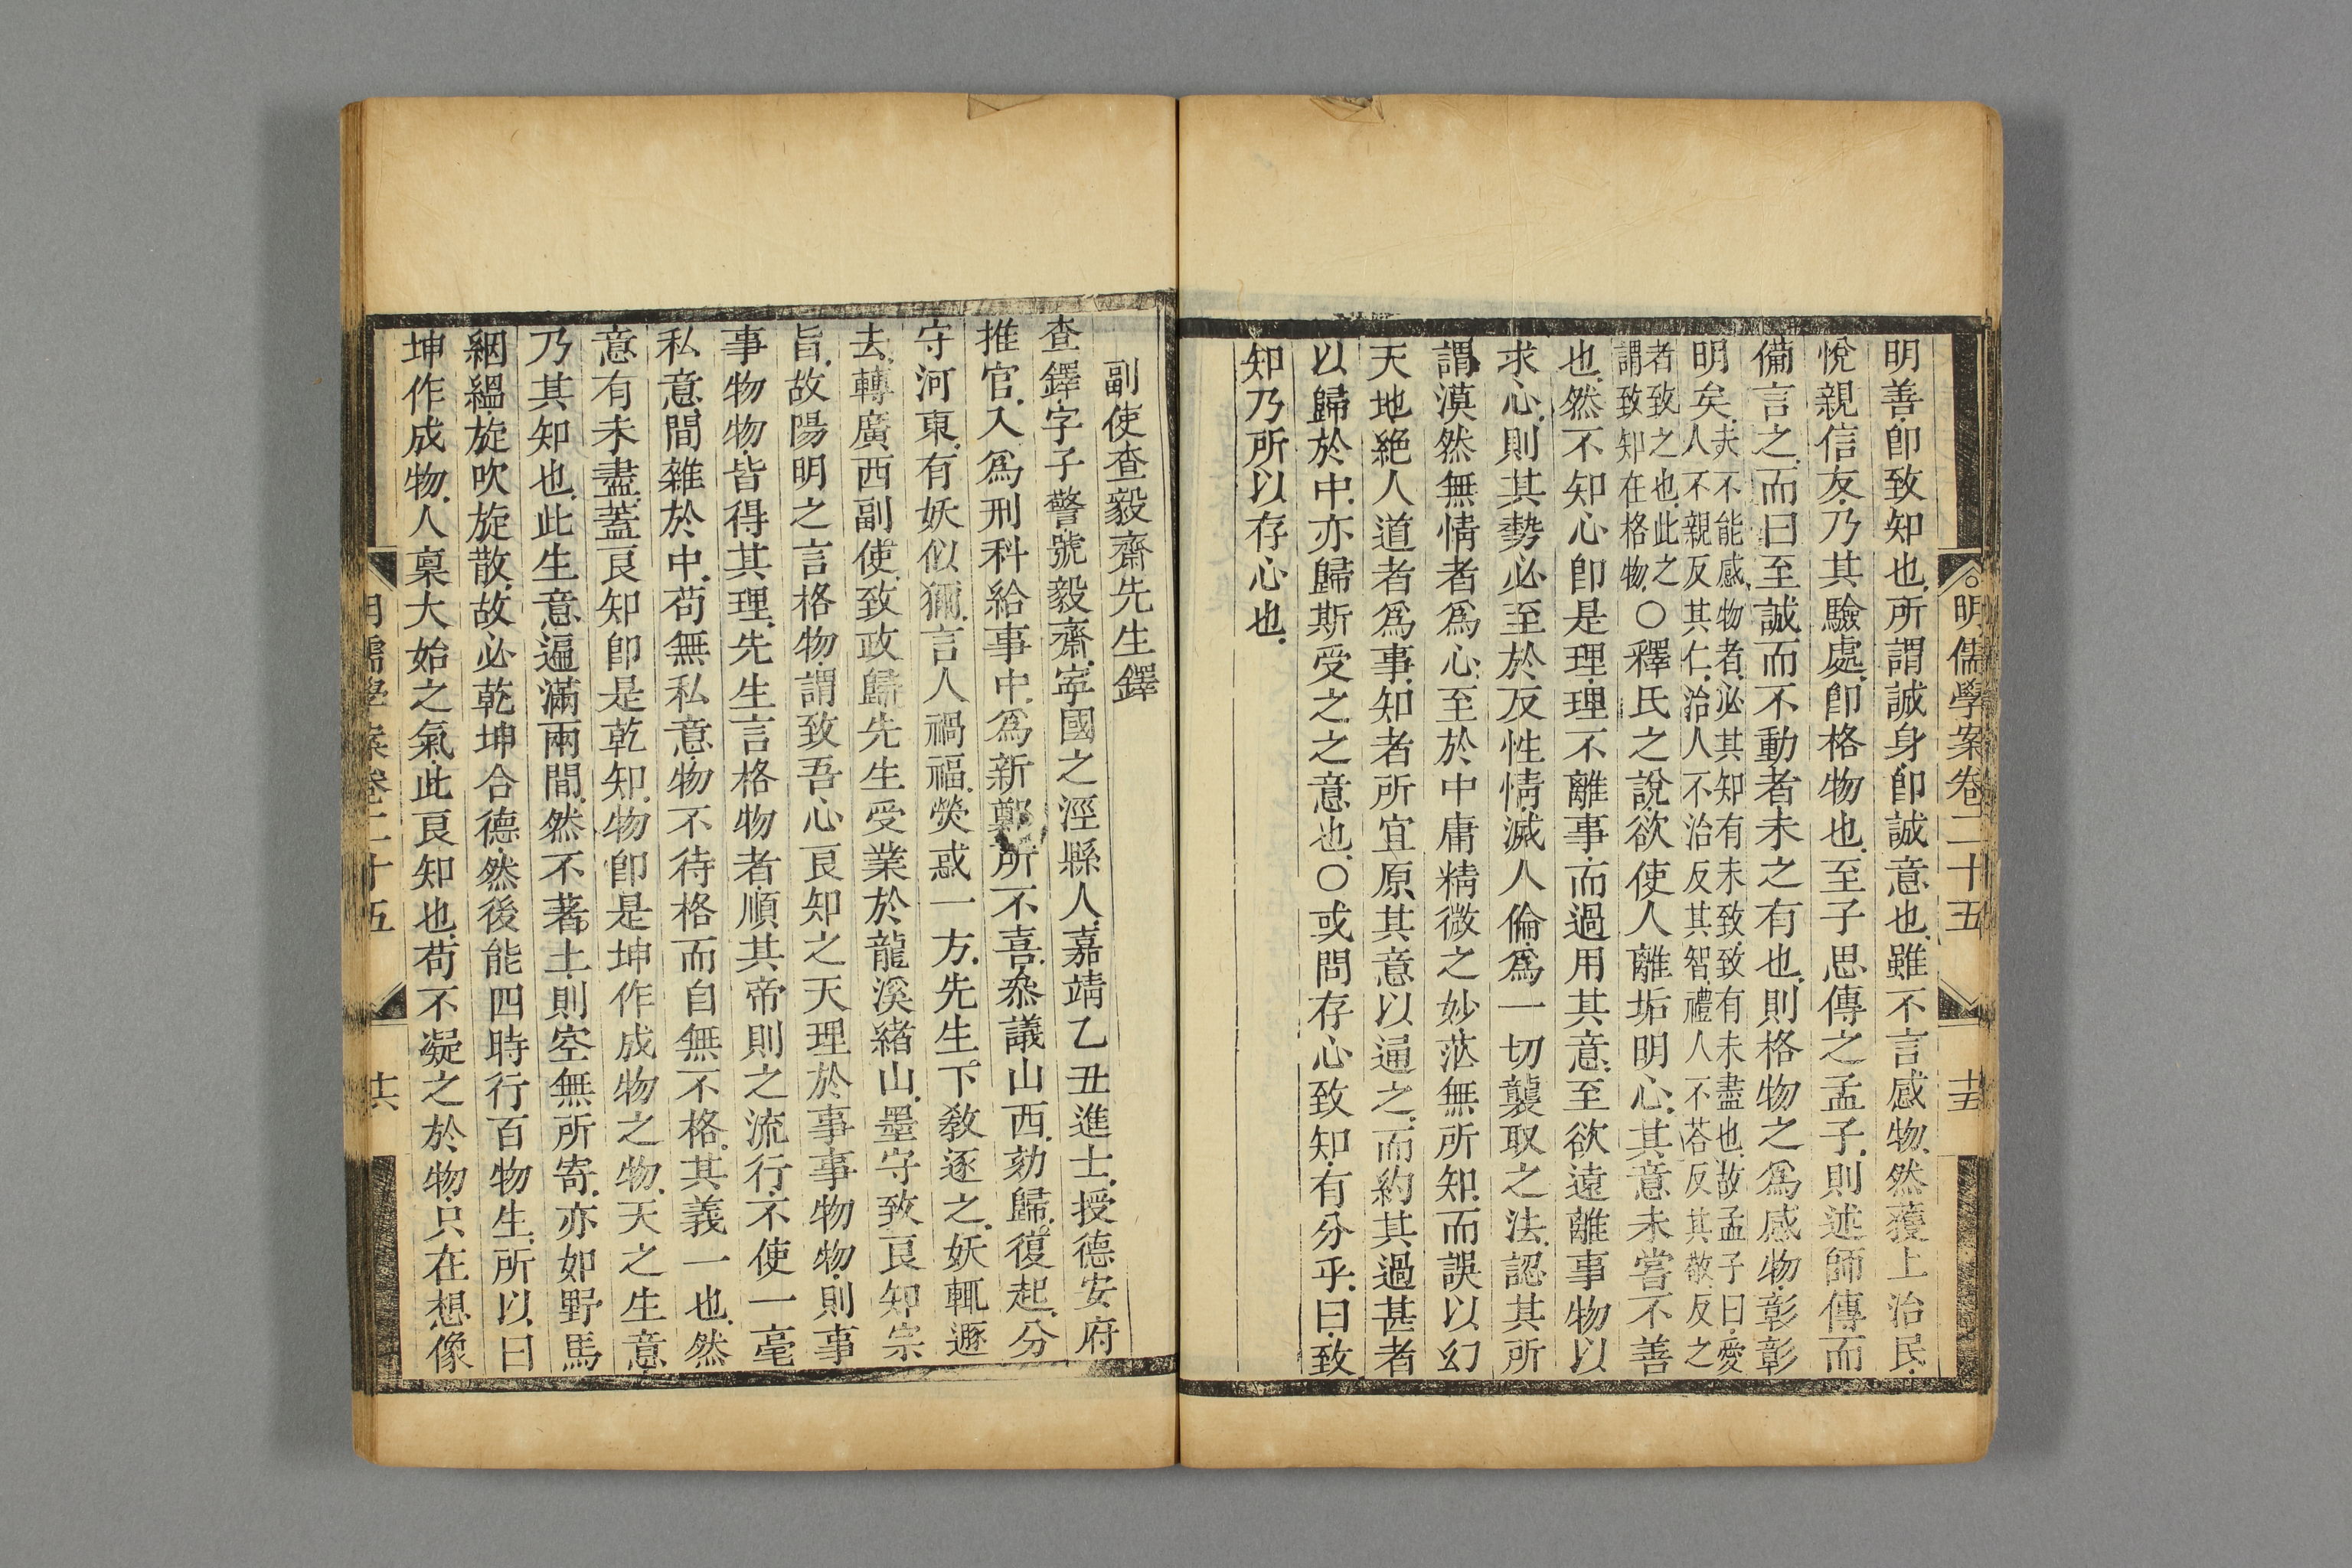 明儒學案卷二十五
十五
明善卽致知也所謂誠身卽誠意也雖不言感物然獲上治民
悅親信友乃其驗處卽格物也至子思傳之孟子則述師傳而
備言之而曰至誠而不動者未之有也則格物之爲感物彰彰
明矣夫不能感物者必其知有未致致有未盡也故孟子曰愛
人不親反其仁治人不治反其智禮人不答反其敬反之
者致之也此之
謂致知在格物〇釋氏之說欲使人離垢明心其意未嘗不善
也然不知心卽是理理不離事而過用其意至欲遠離事物以
求心則其勢必至於反性情滅人倫爲一切襲取之法認其所
謂漠然無情者爲心至於中庸精微之妙茫無所知而誤以幻
天地絶人道者爲事知者所宜原其意以通之而約其過甚者
以歸於中亦歸斯受之之意也〇或問存心致知有分乎曰致
知乃所以存心也
副使查毅齋先生鐸
查鐸字子警號毅齋寧國之涇縣人嘉靖乙丑進士授德安府
推官入爲刑科給事中爲新鄭所不喜叅議山西劾歸復起分
守河東有妖似獮言人禍福熒惑一方先生下教逐之妖輒遯
去轉廣西副使致政歸先生受業於龍溪緒山墨守致良知宗
旨故陽明之言格物謂致吾心良知之天理於事事物物則事
事物物皆得其理先生言格物者順其帝則之流行不使一毫
私意間雜於中苟無私意物不待格而自無不格其義一也然
意有未盡蓋良知卽是乾知物卽是坤作成物之物天之生意
乃其知也此生意逼滿兩間然不著土則空無所寄亦如野馬
絪縕旋吹旋散故必乾坤合德然後能四時行百物生所以曰
坤作成物人稟大始之氣此良知也苟不凝之於物只在想像
明儒學案卷二十五
十六